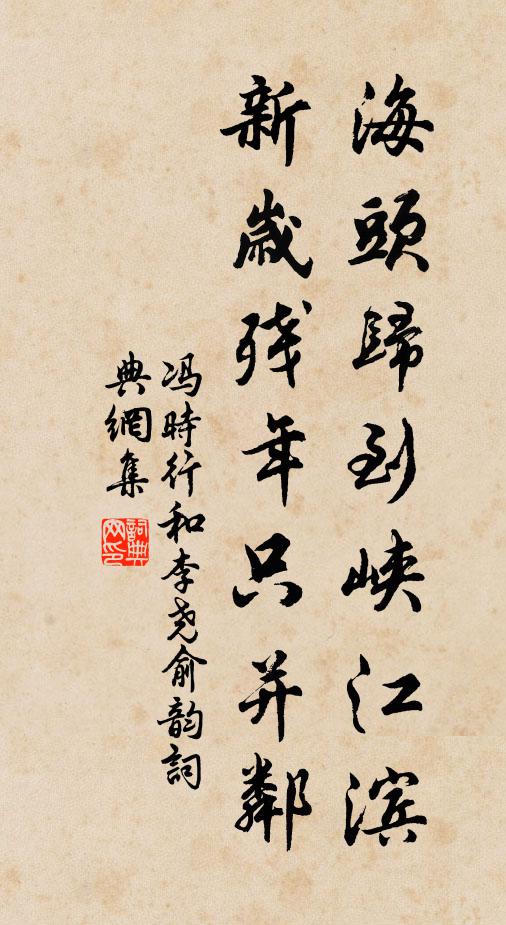 海頭歸到峽江滨
新歲残年只并鄰
冯時行和李尧俞韵詞
典網集
詞典
网印